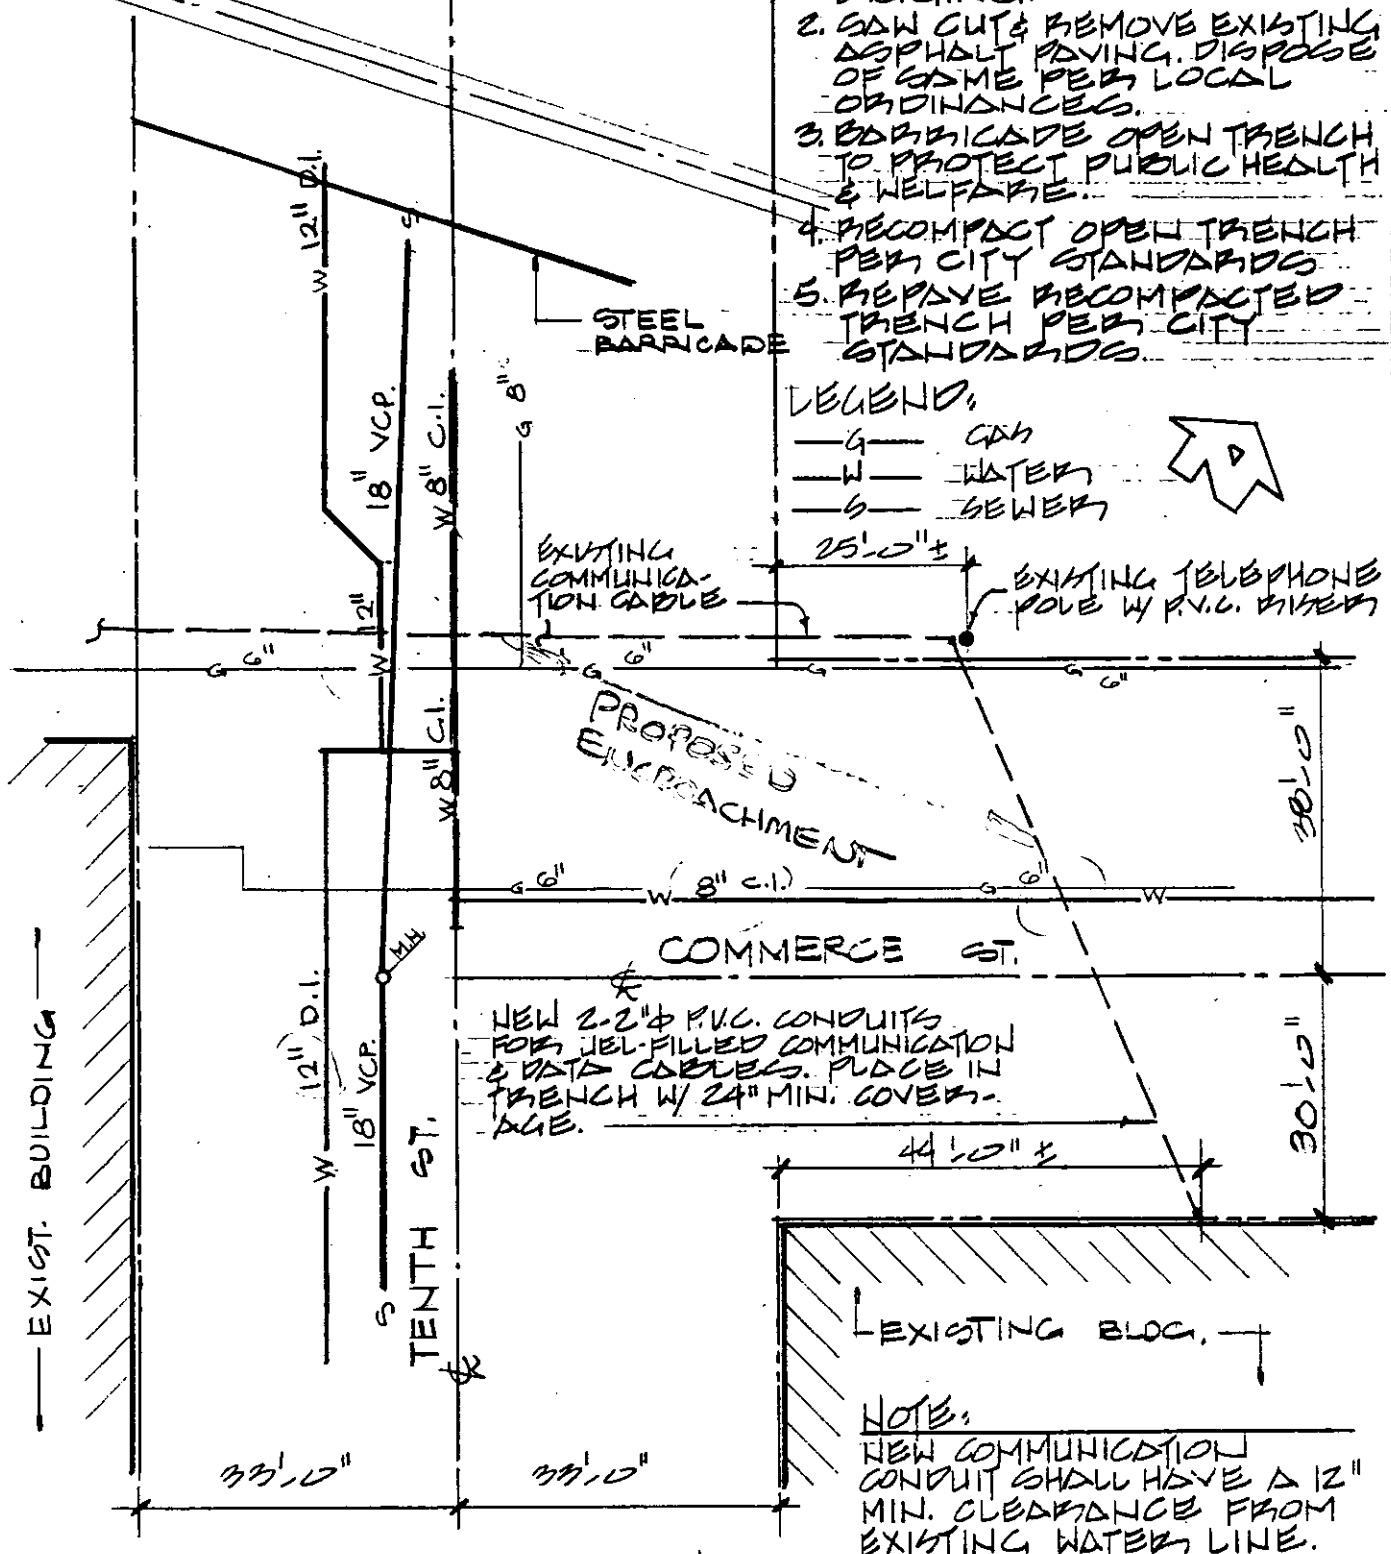 2. SAW CUT & REMOVE EXISTING
ASPHALT PAVING. DISPOSE
OF SAME PER LOCAL
ORDINANCES.
3. BARRICADE OPEN TRENCH
TO PROTECT PUBLIC HEALTH
& WELFARE.
4. RECOMPACT OPEN TRENCH
PER CITY STANDARDS
5. REPAVE RECOMPACTED
TRENCH PER CITY
STANDARDS.
LEGEND:
G GAS
W WATER
S SEWER
12" D.I.
W
S
STEEL
BARRICADE
18" VCP.
W 8" C.I.
G 8"
25'-0"±
EXISTING
COMMUNICA-
TION CABLE
EXISTING TELEPHONE
POLE W/ P.V.C. RISER
W 12"
G 6"
G 6"
G
G 6"
W 8" C.I.
PROPOSED
ENCROACHMENT
38'-0"
G 6"
W 8" C.I.)
G 6"
W
M.H.
COMMERCE ST.
NEW 2-2"Φ P.V.C. CONDUITS
FOR JEL-FILLED COMMUNICATION
& DATA CABLES. PLACE IN
TRENCH W/ 24" MIN. COVER-
AGE.
30'-0"
44'-0"±
EXIST. BUILDING
12" D.I.
W
18" VCP.
S
TENTH ST.
EXISTING BLDG.
33'-0"
33'-0"
NOTE:
NEW COMMUNICATION
CONDUIT SHALL HAVE A 12"
MIN. CLEARANCE FROM
EXISTING WATER LINE.